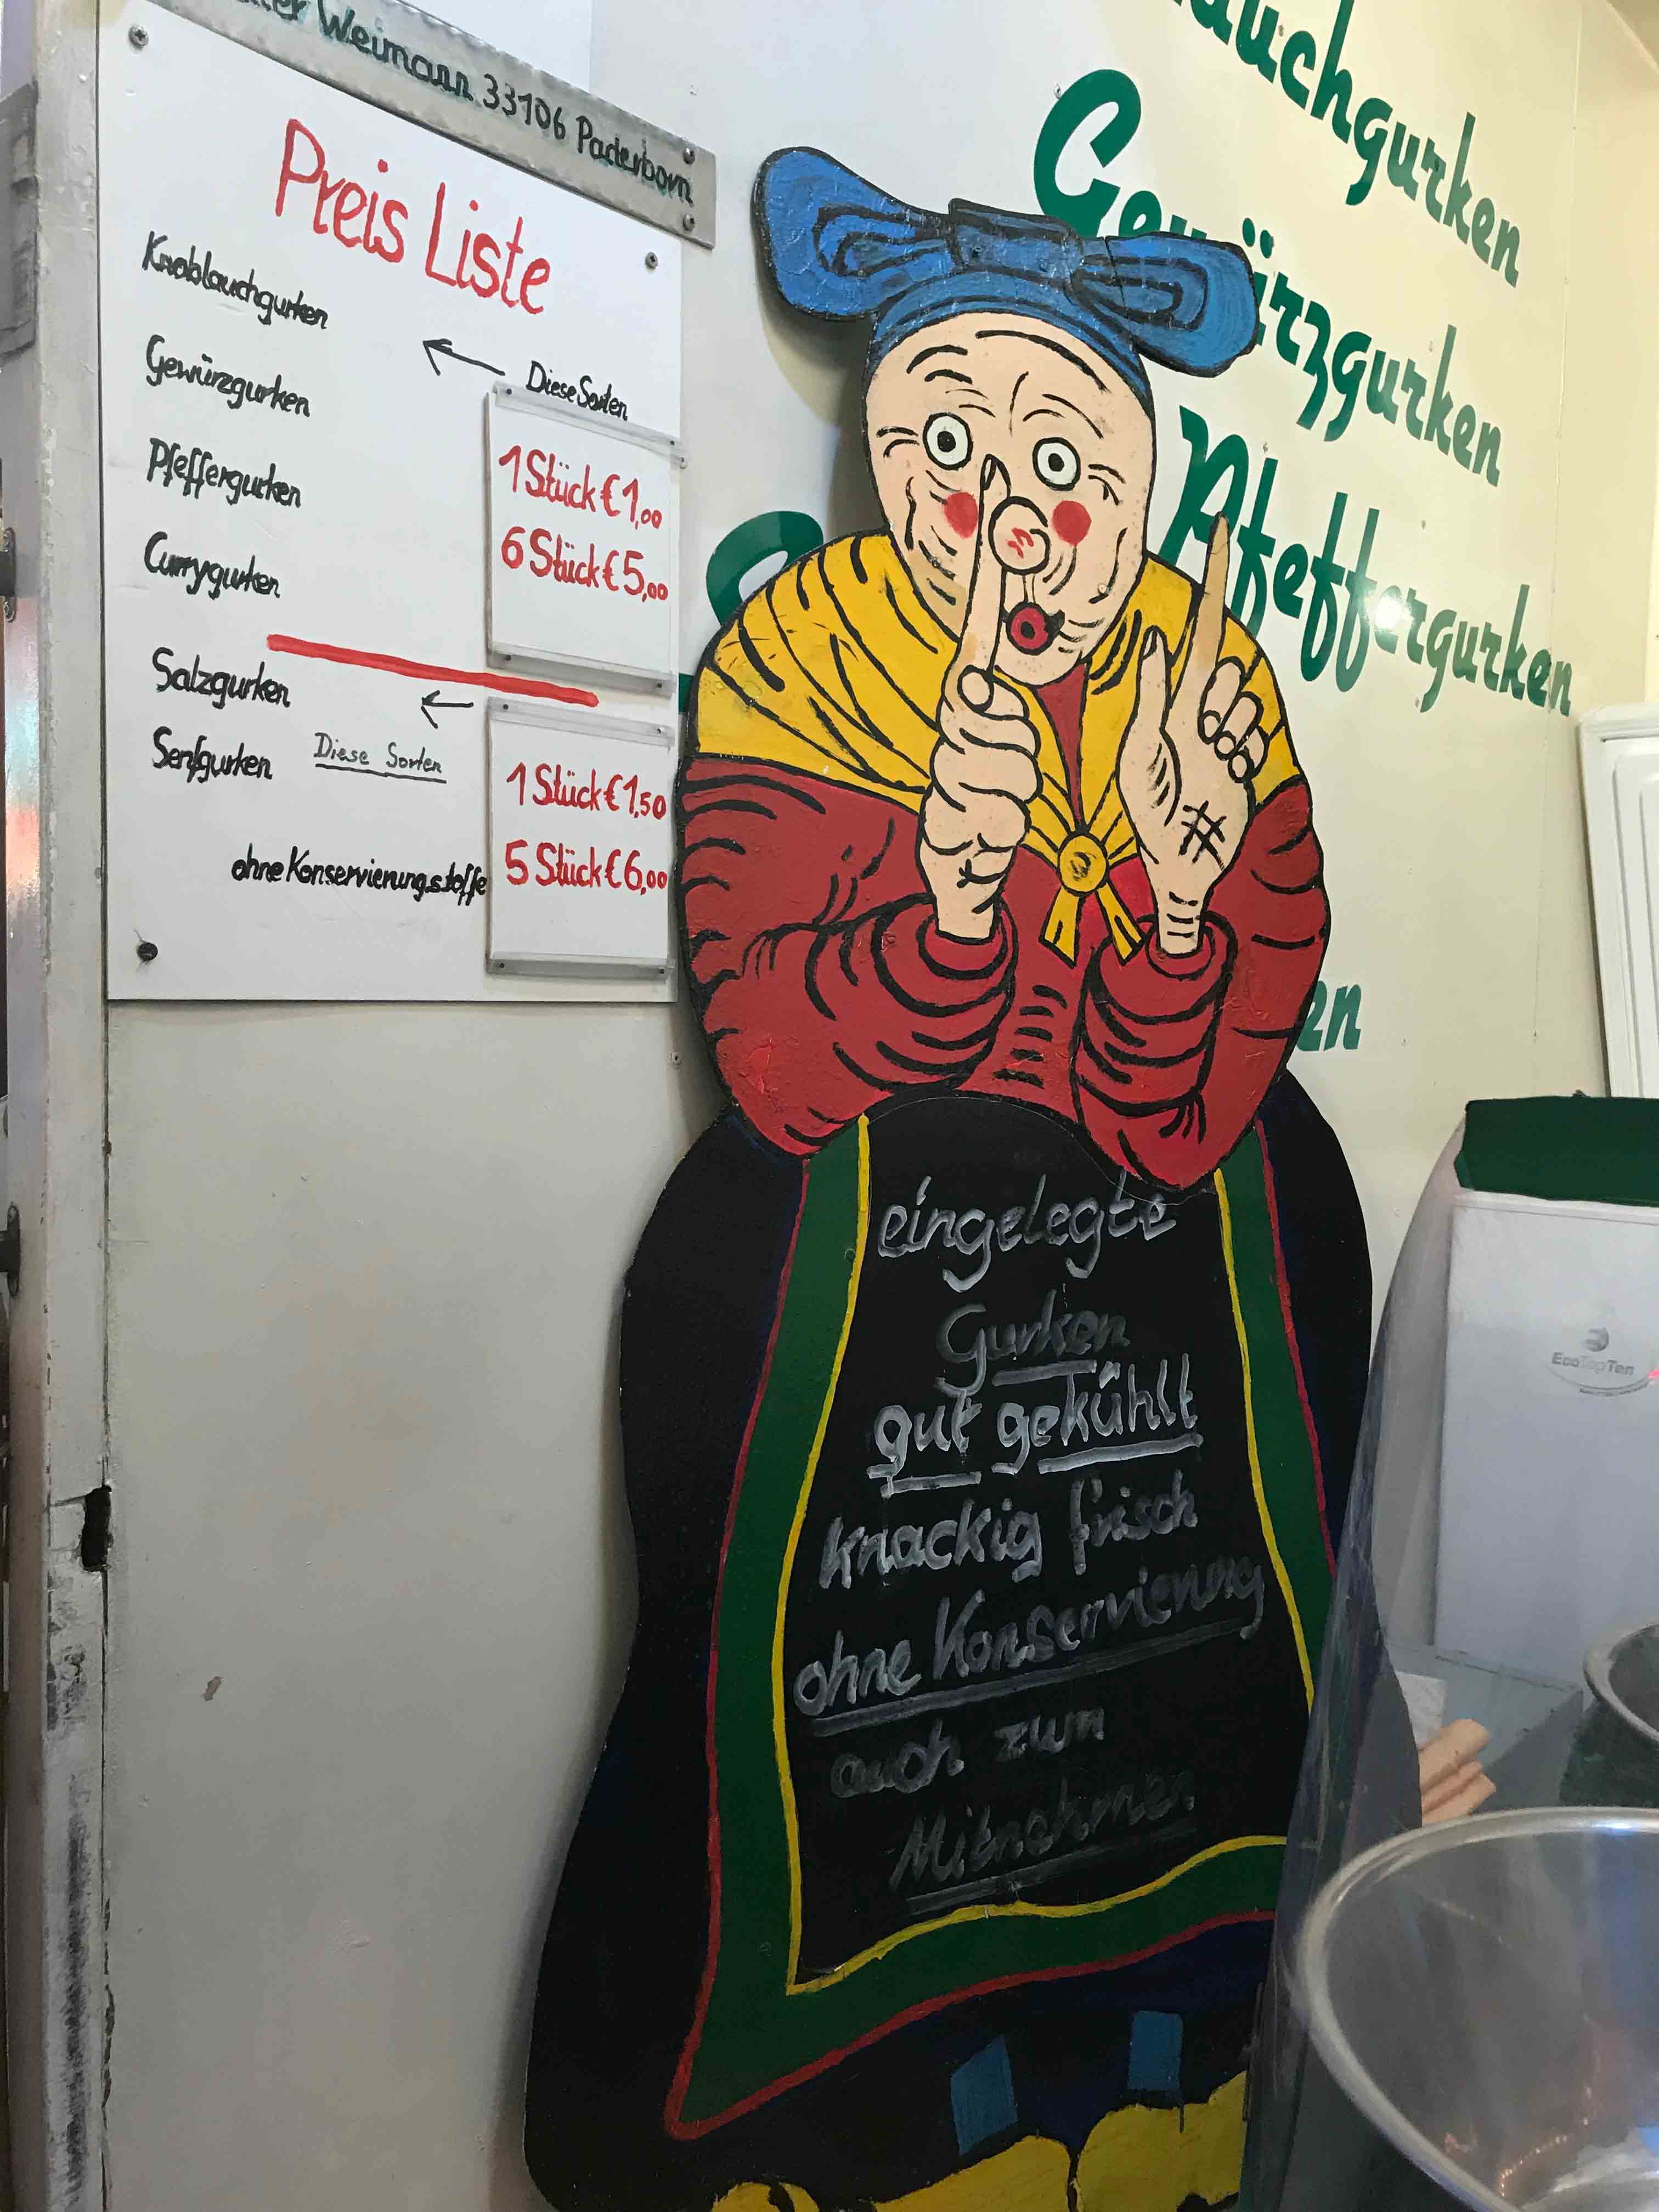 Weimann 33106 Paderborn
Preis Liste
Knoblauchgurken
Gewürzgurken
Pfeffergurken
Currygurken
Diese Sorten
1 Stück € 1,00
6 Stück € 5,00
Salzgurken
Senfgurken
Diese Sorten
1 Stück € 1,50
5 Stück € 6,00
ohne Konservierungsstoffe
auchgurken
Gewürzgurken
Pfeffergurken
en
eingelegte
Gurken
gut gekühlt
knackig frisch
ohne Konservierung
auch zum
Mitnehmen
EcoTopTen